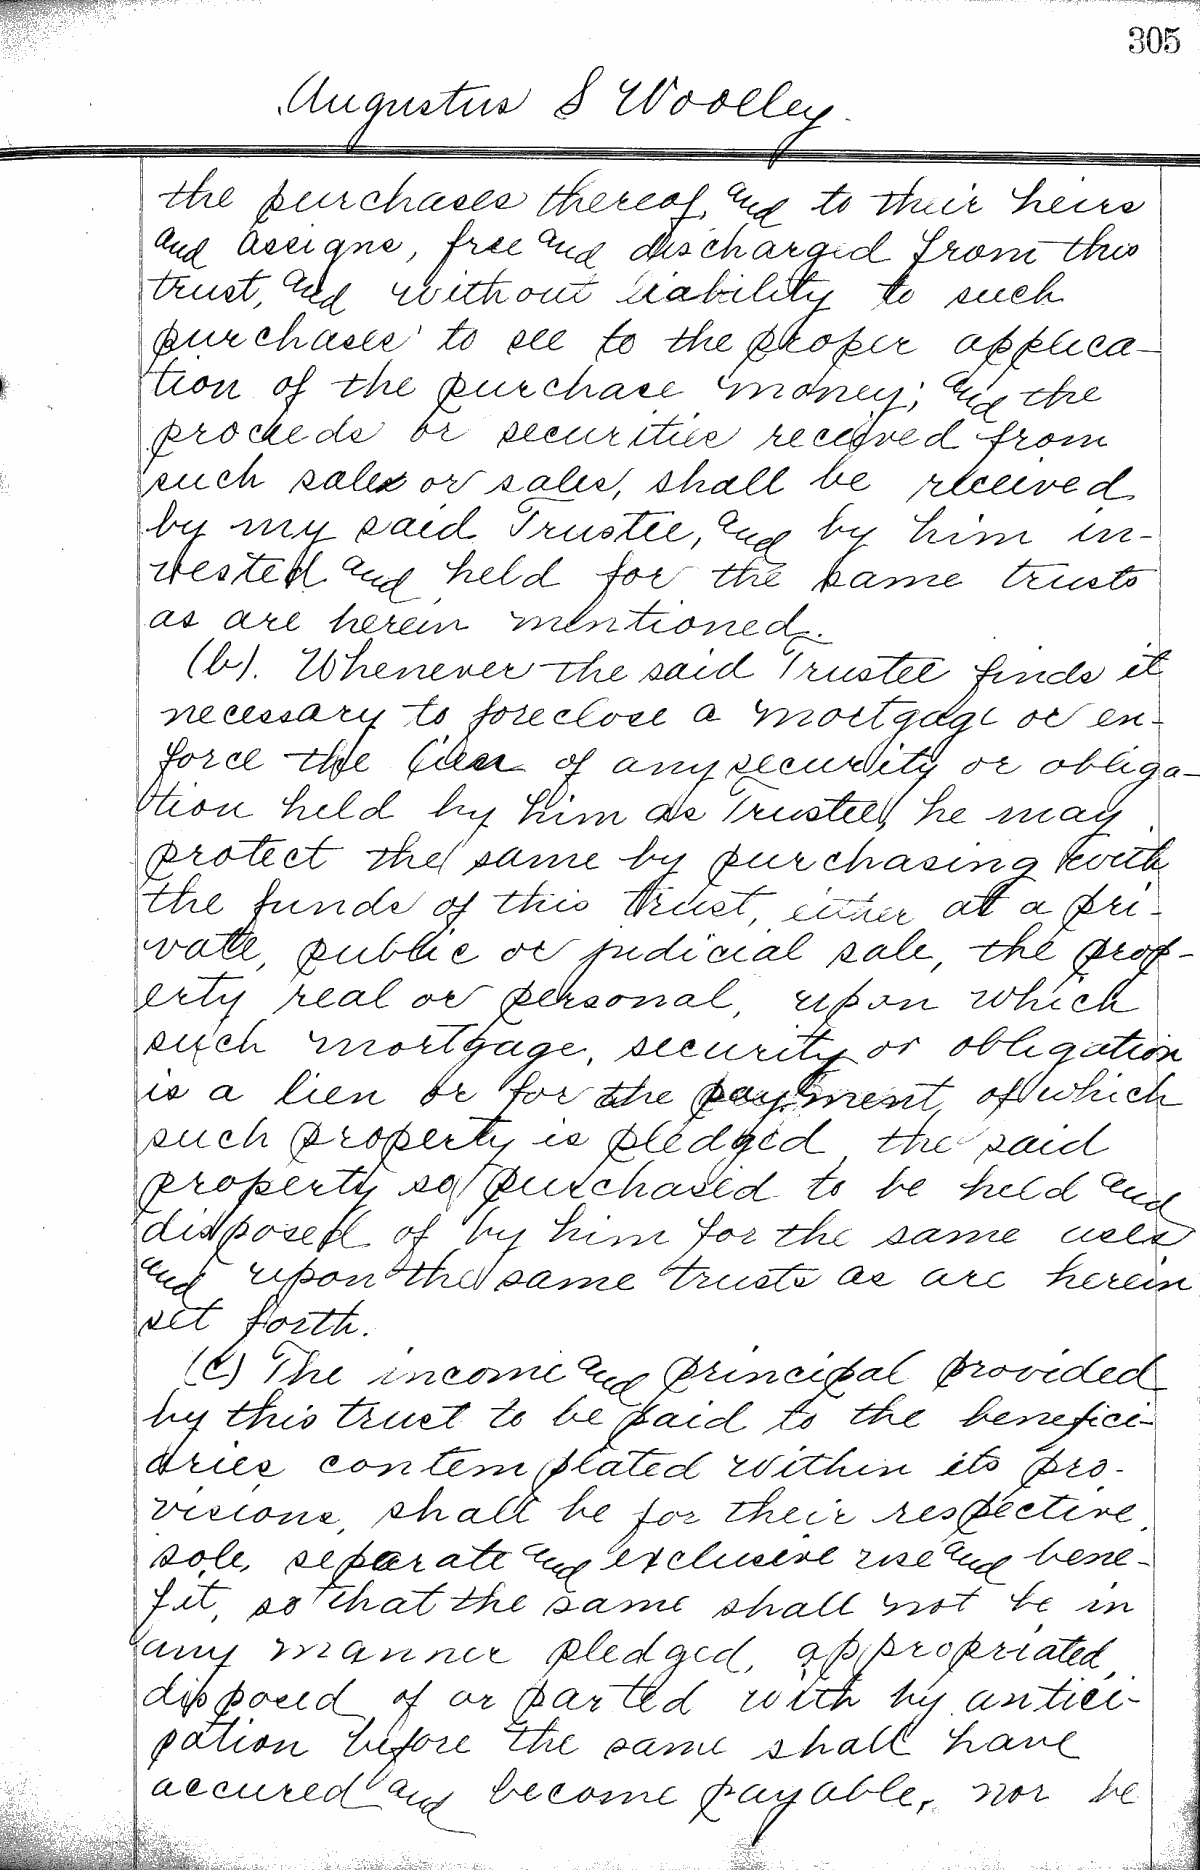 305
Augustus S Woolley.
the purchases thereof, and to their heirs
and assigns, free and discharged from this
trust, and without liability to such
purchases to see to the proper applica-
tion of the purchase money; and the
proceeds or securities received from
such sales or sales, shall be received
by my said Trustee, and by him in-
vested and held for the same trusts
as are herein mentioned.
(b). Whenever the said Trustee finds it
necessary to foreclose a mortgage or en-
force the lien of any security or obliga-
tion held by him as Trustee, he may
protect the same by purchasing with
the funds of this trust, either at a pri-
vate, public or judicial sale, the prop-
erty real or personal, upon which
such mortgage, security or obligation
is a lien or for the payment, of which
such property is pledged, the said
property so purchased to be held and
disposed of by him for the same uses
and upon the same trusts as are herein
set forth.
(c) The income and principal provided
by this trust to be paid to the benefici-
aries contemplated within its pro-
visions, shall be for their respective,
sole, separate and exclusive use and bene-
fit, so that the same shall not be in
any manner pledged, appropriated,
disposed of or parted with by antici-
pation before the same shall have
accured and become payable, nor be